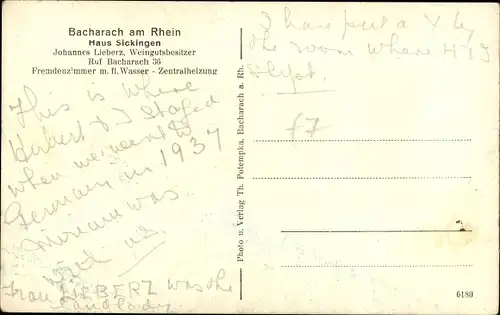 Bacharach am Rhein
Haus Sickingen
Johannes Lieberz, Weingutsbesitzer
Ruf Bacharach 36
Fremdenzimmer m. fl. Wasser - Zentralheizung
This is where
Herbert & I stayed
when we went to
Germany in 1937
Miriam was
with us.
Frau LIEBERZ was the
landlady
Photo u. Verlag Th. Potempka, Bacharach a. Rh.
I have put a X by
the room where H & I
slept.
£7
6180